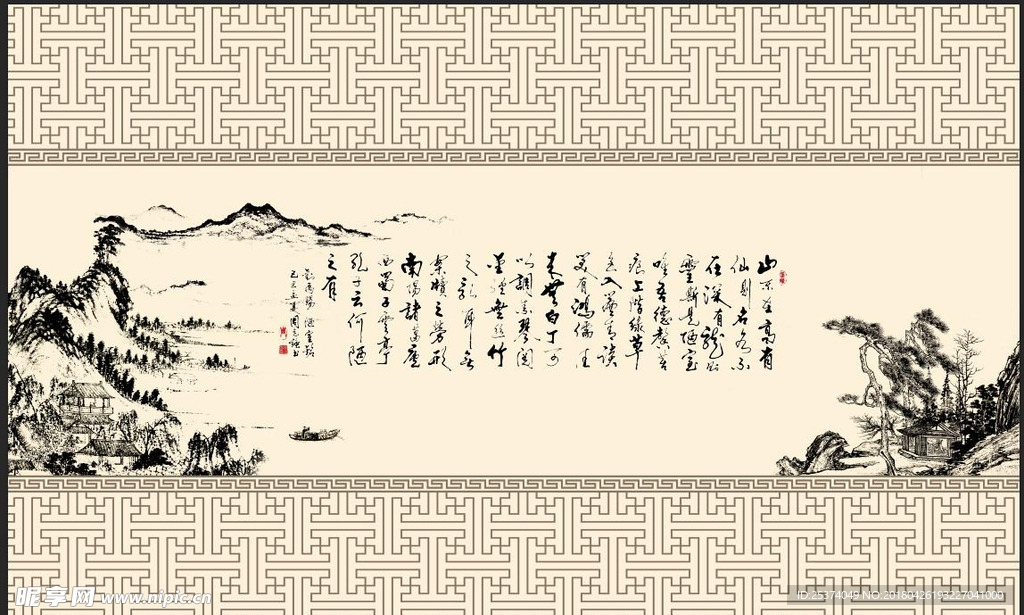 山不在高有
仙則名水不
在深有龍則
靈斯是陋室
唯吾德馨苔
痕上階綠草
色入簾青談
笑有鴻儒往
來無白丁可
以調素琴閱
金經無絲竹
之亂耳無
案牘之勞形
南陽諸葛廬
西蜀子雲亭
孔子云何陋
之有
劉禹錫陋室銘
昵享网 www.nipic.cn
ID:25374049 NO:20180426193227041000